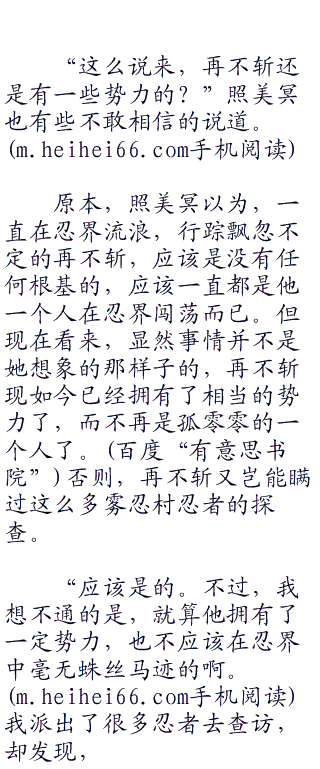 “这么说来，再不斩还
是有一些势力的？”照美冥
也有些不敢相信的说道。
(m.heihei66.com手机阅读)
原本，照美冥以为，一
直在忍界流浪，行踪飘忽不
定的再不斩，应该是没有任
何根基的，应该一直都是他
一个人在忍界闯荡而已。但
现在看来，显然事情并不是
她想象的那样子的，再不斩
现如今已经拥有了相当的势
力了，而不再是孤零零的一
个人了。(百度“有意思书
院”)否则，再不斩又岂能瞒
过这么多雾忍村忍者的探
查。
“应该是的。不过，我
想不通的是，就算他拥有了
一定势力，也不应该在忍界
中毫无蛛丝马迹的啊。
(m.heihei66.com手机阅读)
我派出了很多忍者去查访，
却发现，